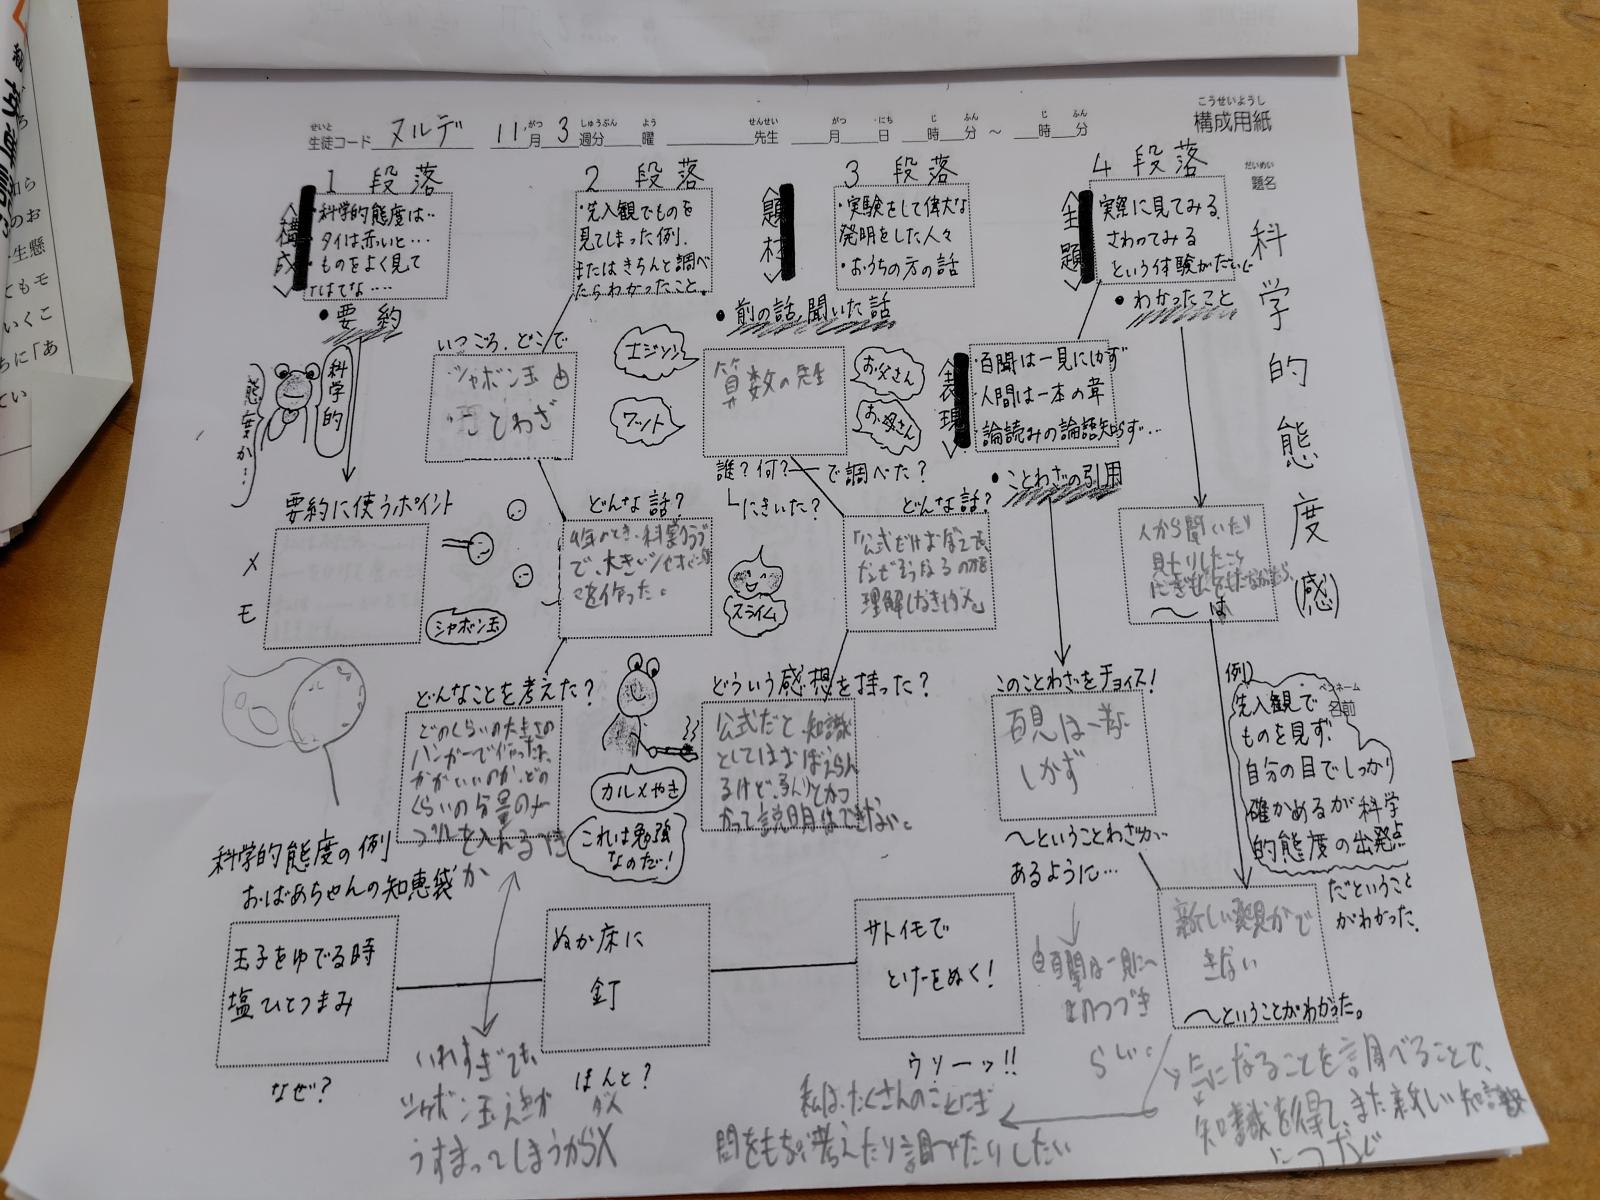 こうせいようし
構成用紙
せいと
生徒コード ヌルデ 11月 3週分 曜 先生 月 日 時 分 ~ 時 分
だいめい
題名
科学的態度(感)
ペンネーム
名前
1 段落
<構成>
・科学的態度は‥
タイは赤いと…
・ものをよく見て
はてな‥‥
・要約
科学的
態度か…
要約に使うポイント
メモ
2 段落
・先入観でものを
見てしまった例.
またはきちんと調べ
たらわかったこと.
いつごろ、どこで
シャボン玉
ことわざ
どんな話?
4年のとき、科学クラブ
で、大きいシャボン玉
を作った。
シャボン玉
どんなことを考えた?
どのくらいの大きさの
ハンガーで作ったほ
うがいいのか、どの
くらいの分量の
を入れるべき
か
いれすぎても、
シャボン玉えきが
うすまってしまうから×
<題材>
3 段落
・実験をして偉大な
発明をした人々
・おうちの方の話
・前の話、聞いた話
エジソン
ワット
算数の先生
お父さん
お母さん
誰?何?
で調べた?
にきいた?
スライム
どんな話?
「公式だけおぼえても、
なぜそうなるのかを
理解しなきゃダメ。」
どういう感想を持った?
公式だと、知識
としてはおぼえられ
るけど、
って説明はできない。
カルメやき
これは勉強
なのだ!
4 段落
<主題>
実際に見てみる
さわってみる
という体験がだいじ
・わかったこと
<表現>
・百聞は一見にしかず
・人間は一本の葦
・論語読みの論語知らず…
・ことわざの引用
人から聞いたり
見たりしたこと
~は
このことわざをチョイス!
百見は一考に
しかず
~ということわざが
あるように…
百聞は一見に~
のつづき
らしい。
例)
先入観で
ものを見ず、
自分の目でしっかり
確かめるが科学
的態度の出発点
だということ
がわかった.
新しい発見がで
きない
~ということがわかった。
気になることを調べることで、
知識を得て、また新しい知識
につなぐ
私は、たくさんのことにぎ
問をもち、考えたり調べたりしたい
科学的態度の例
おばあちゃんの知恵袋
玉子をゆでる時
塩ひとつまみ
なぜ?
ぬか床に
釘
ほんと?
サトイモで
とげをぬく!
ウソーッ!!